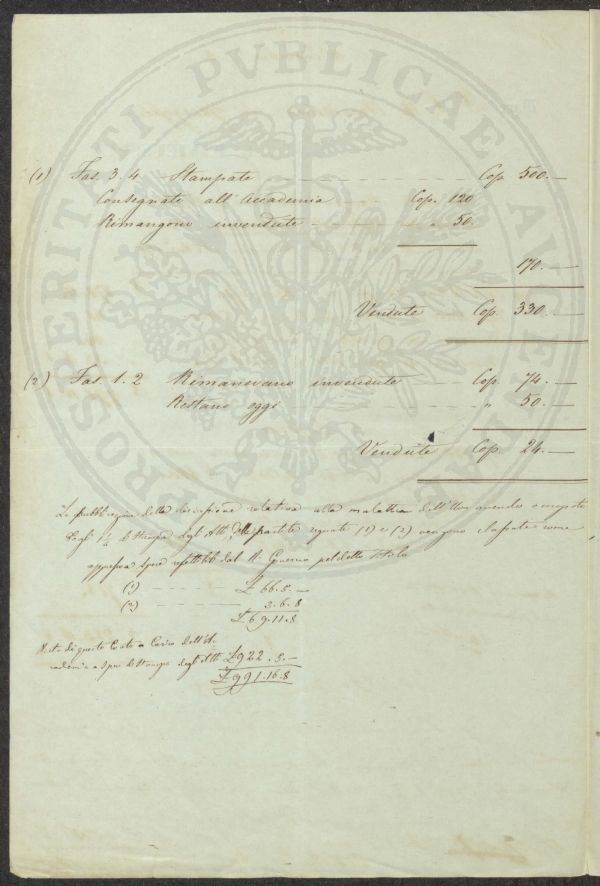 PROSPERITATI PVBLICAE AVGENDAE
(1) Fas. 3. 4 Stampate Cop. 500.
Consegnate all'Accademia Cop. 120
Rimangono invendute " 50.
170.
Vendute Cop. 330.
(2) Fas. 1. 2 Rimanevano invendute Cop. 74.
Restano oggi " 50.
Vendute Cop. 24.
La pubblicazione della discussione relativa alla malattia dell'Uva avendo
degli Atti, delle partite segnate (1) e (2) vengono come
appresso spese dal R. Governo pel detto titolo
(1) £ 66.5.
(2) 3.6.8
£ 69.11.8
di questo Conto a Carico dell'Ac
cademia a spese di Stampa degli Atti £ 922.5.
£ 991.16.8